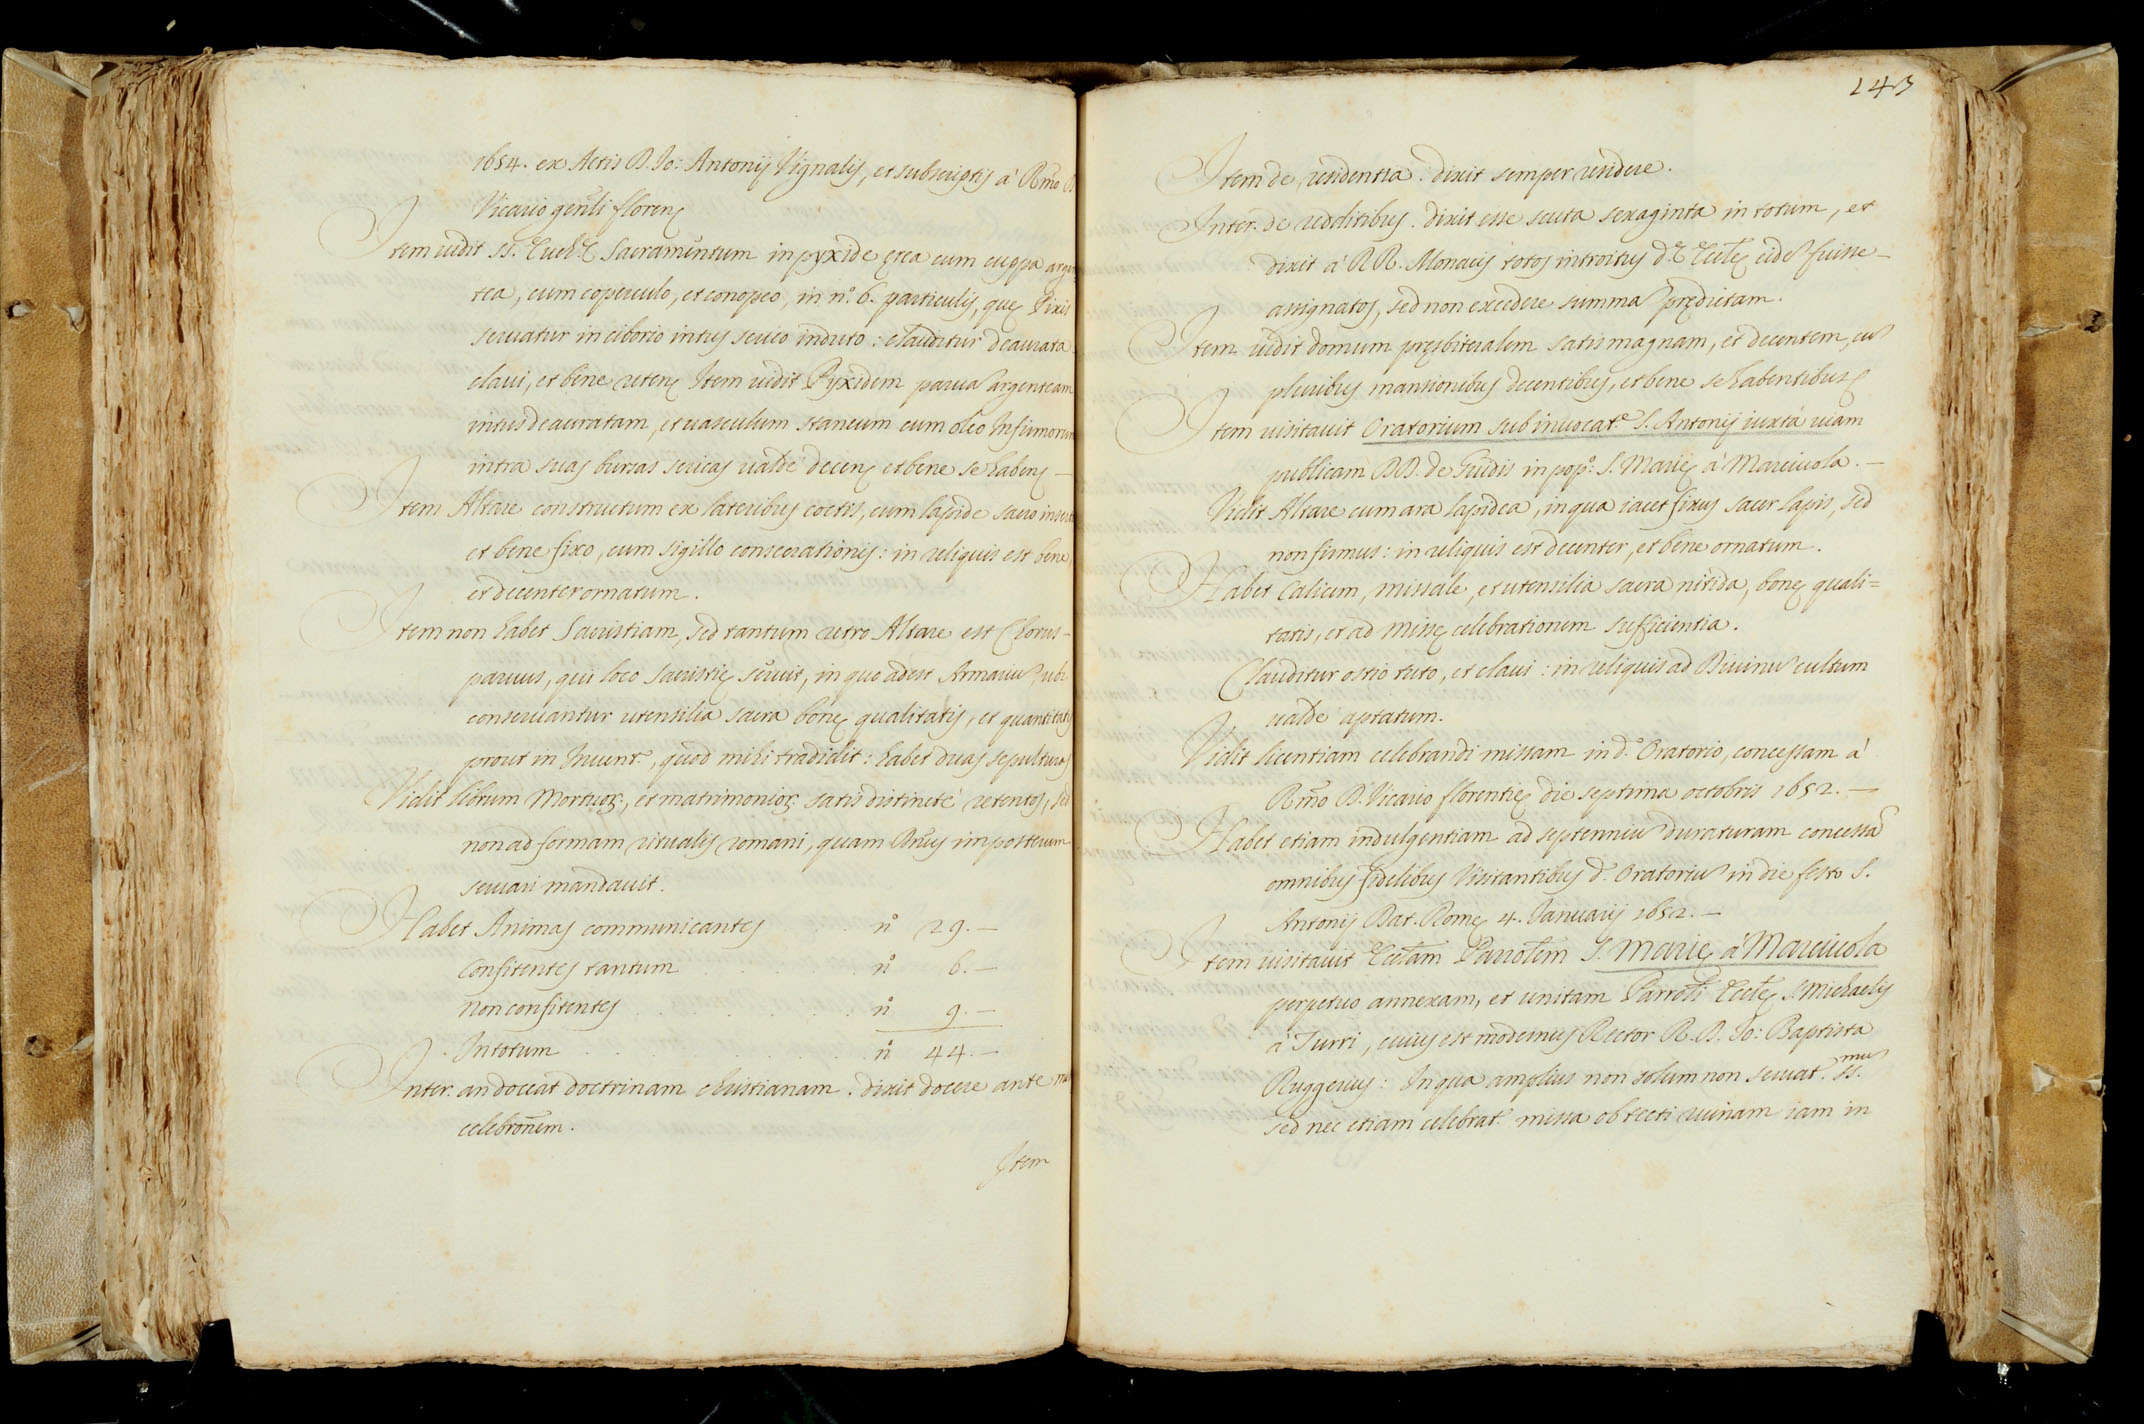 1654. ex Actis D. Io: Antonij Vignalis, et subscriptis à Rmo D.
Vicario gen̄li floren̨
Item vidit SS. Euch.ę Sacramentum in pyxide ęrea cum cuppa argen
tea, cum coperculo, et conopeo, in n.o 6. particulis, quę Pixis
servatur in ciborio intus serico induto: clauditur deaurata
clavi, et bene reten̨ Item vidit Pyxidem parva argenteam
intus deauratam, et vasculum staneum cum oleo Infirmorum
intra suas bursas sericas valdè decen̨ et bene se haben̨ —
Item Altare constructum ex lateribus coctis, cum lapide sacro inserto
et bene fixo, cum sigillo consecrationis: in reliquis est bene
et decenter ornatum.
Item non habet Sacristiam, sed tantum retro Altare est Chorus
parvus, qui loco sacristię servit, in quo adest Armariu, ubi
conservantur utensilia sacra bonę qualitatis, et quantitatis
prout in Invent.o, quod mihi tradidit: habet duas sepulturas
Vidit librum Mortuor., et matrimonior. satis distinctè retentos, sed
non ad formam ritualis romani, quam Dn̄us imposterum
servari mandavit.
Habet Animas communicantes . . n.o 29. —
Confitentes tantum . . . n.o 6. —
Non confitentes . . . . . . . n.o 9. —
In totum . . . . . n.o 44. —
Inter. an doceat doctrinam christianam. dixit docere ante
celebron̄em.
Item
143
Item de residentia. dixit semper residere.
Inter. de redditibus. dixit esse scuta sexaginta in totum, et
dixit à RR. Monacis totos introitus d.ę Eccl̄ę eid. fuisse —
assignatos, sed non excedere summa prędictam.
Item vidit domum pręsbiteralem satis magnam, et decentem, cu
pluribus mansionibus decentibus, et bene se habentibus
Item visitavit Oratorium sub invocat.e S. Antonij iuxtà viam
publicam DD. de Guidis in pop.o: S. Marię à Marcivola. —
Vidit Altare cum ara lapidea, in qua iacet fixus sacer lapis, sed
non firmus: in reliquis est decenter, et bene ornatum.
Habet Calicem, missale, et utensilia sacra nitida, bonę quali=
tatis, et ad missę celebrationem sufficientia.
Clauditur ostio tuto, et clavi: in reliquis ad Divinu cultum
valdè aptatum.
Vidit licentiam celebrandi missam in d.o Oratorio, concessam à
Rmo D. Vicario florentię die septima octobris 1652. —
Habet etiam indulgentiam ad septenniu duraturam concessa
omnibus fidelibus Visitantibus d. Oratoriu in die festo S.
Antonij Dat. Romę 4. Ianuarij 1652. —
Item visitavit Eccl̄am Parrol̄em S. Marię à Marcivola
perpetuo annexam, et unitam Parrol̄i Eccl̄ę S. Michaelis
à Turri, cuius est modernus Rector R. D. Io: Baptista
Ruggerius: In qua amplius non solum non servat. SS.mu
sed nec etiam celebrat. missa ob tecti ruinam iam in